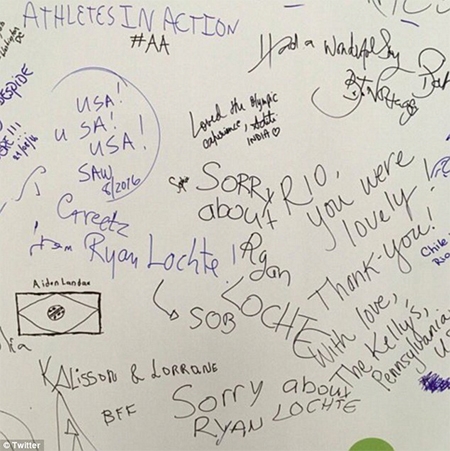 ATHLETES IN ACTION
#AA
Had a wonderful
USA!
USA!
USA!
SAW
8/2016
Loved the Olympic
experience,
INDIA ♡
Sorry
about
Ryan
LOCHTE
RIO,
you were
lovely!
Thank-you!
With love,
The Kellys,
Pennsylvania
Chile
Greetz
Ryan Lochte!
SOB
Aiden Landau
KALISSON & LORRANE
BFF
Sorry about
RYAN LOCHTE
© Twitter